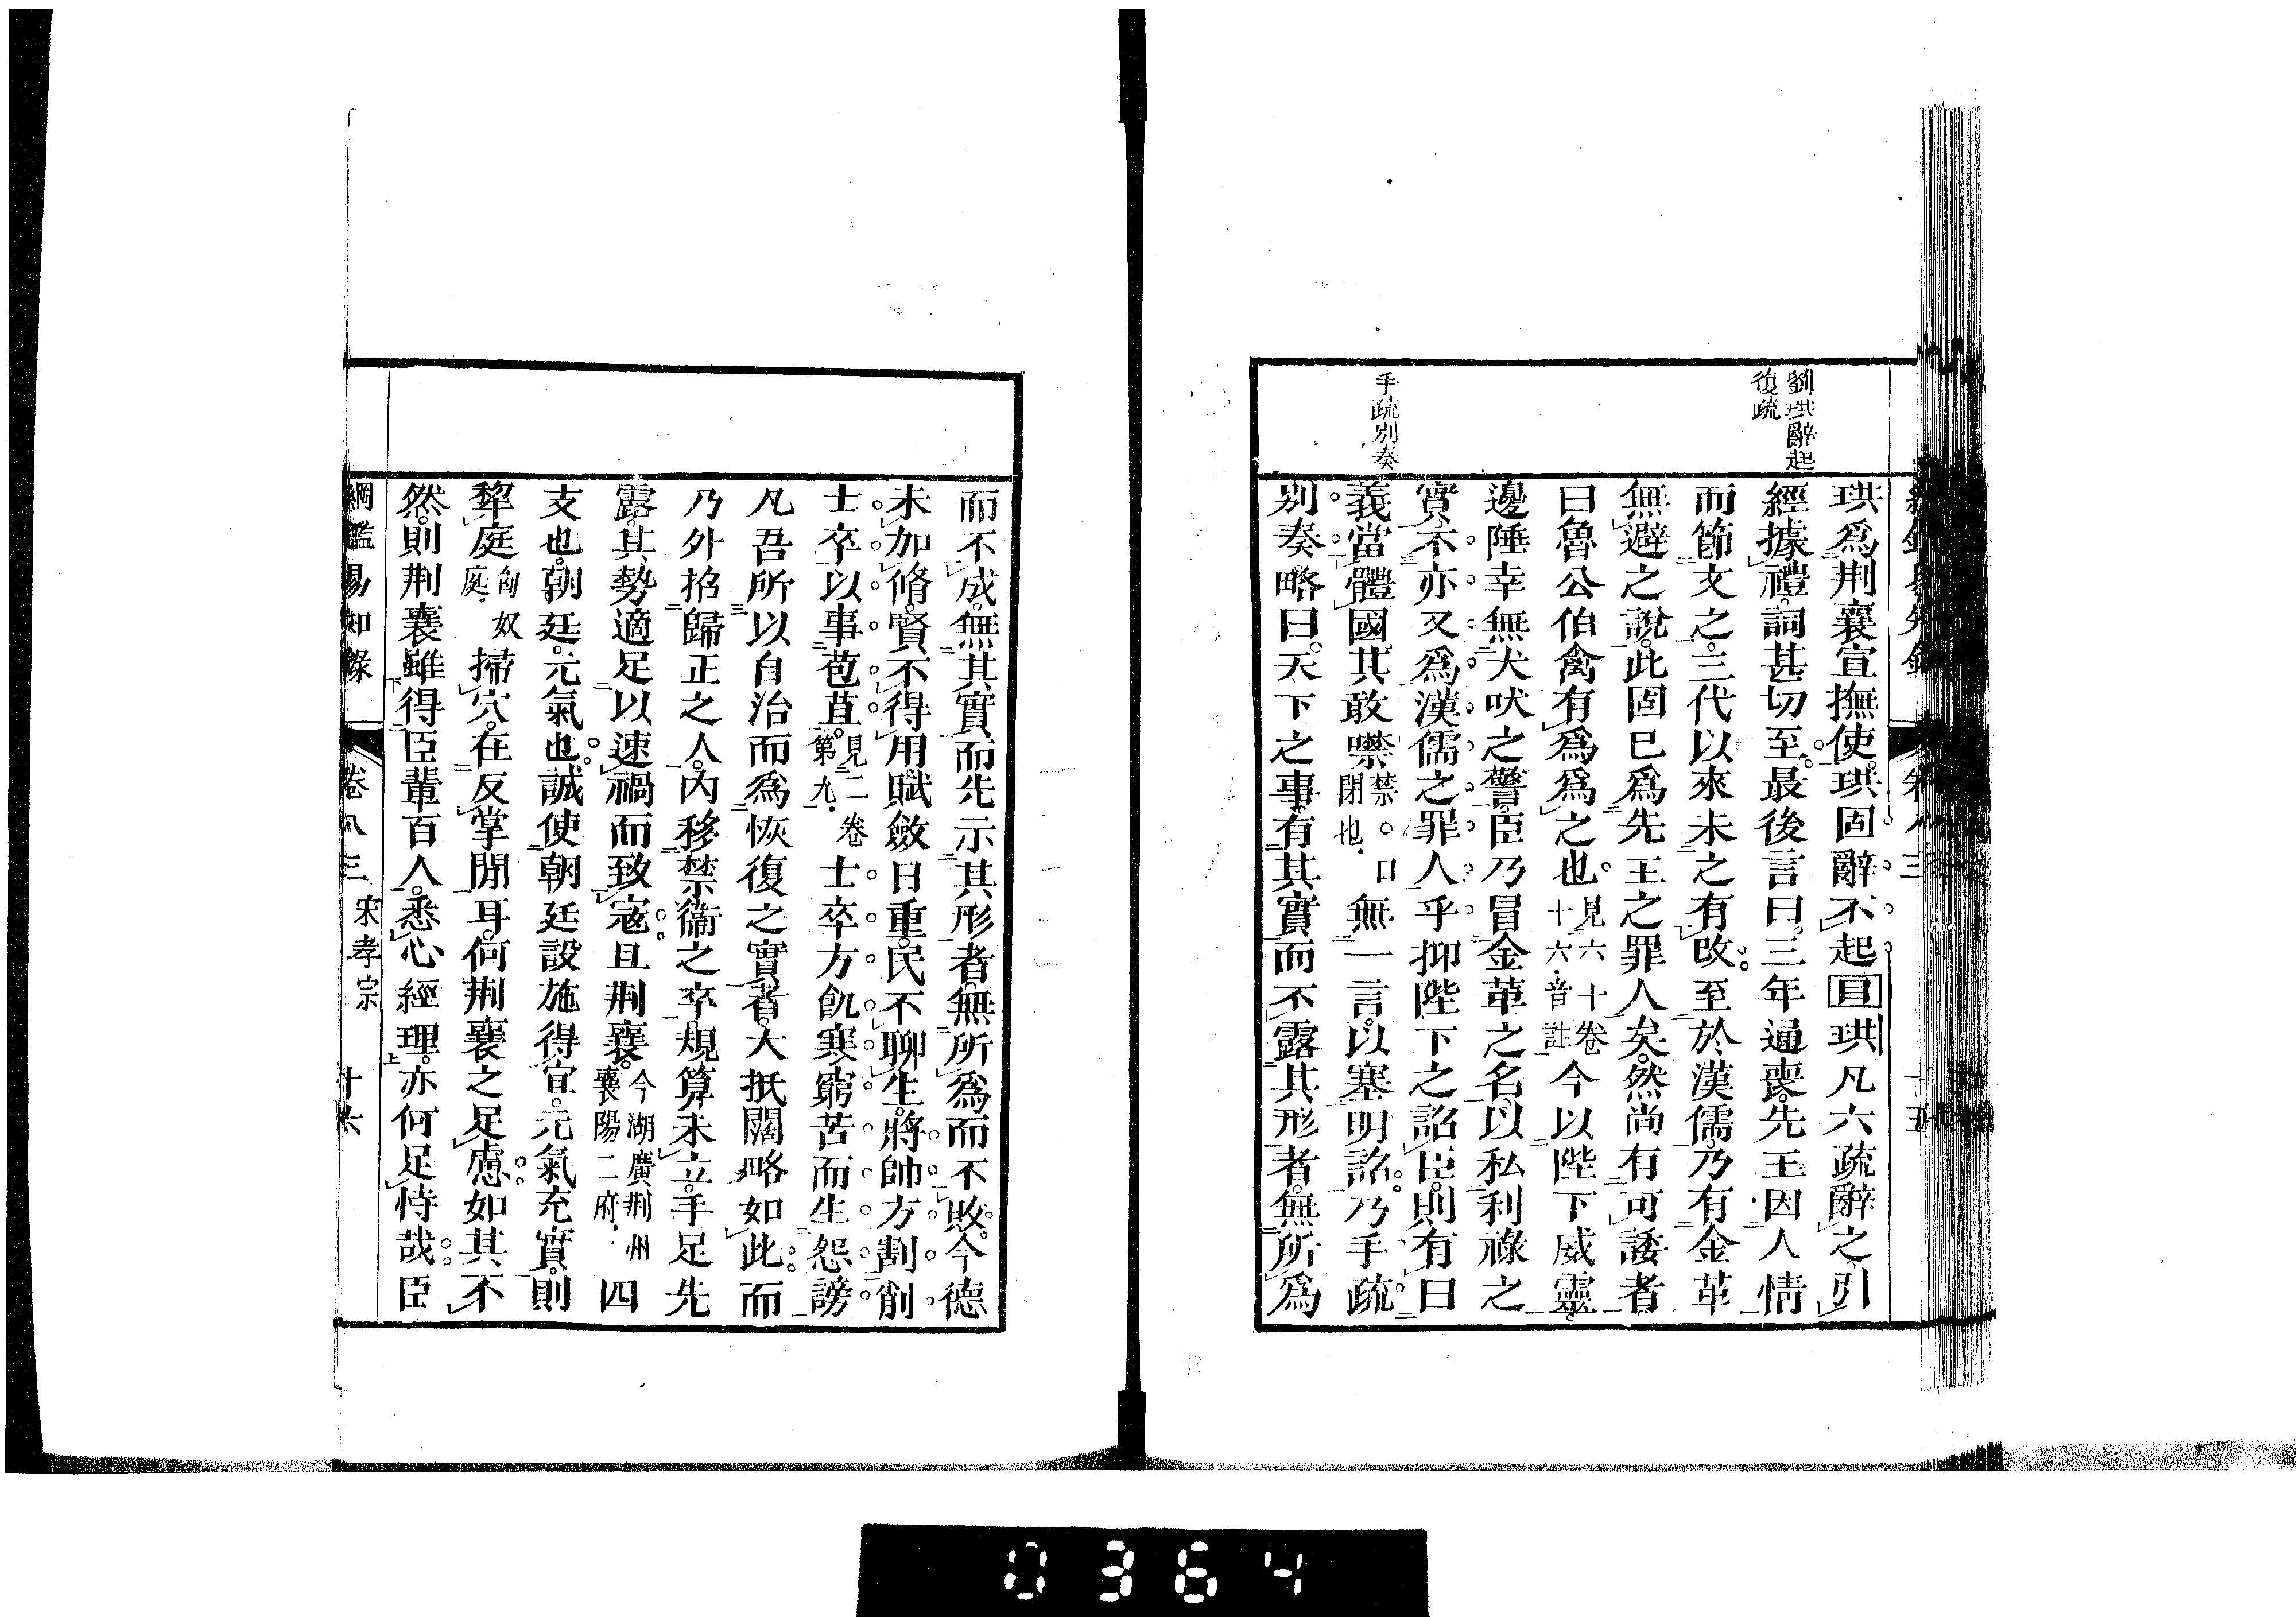 劉珙辭起
復疏
手疏別奏
珙爲荆襄宣撫使。珙固辭不起目珙凡六疏辭之。引
經據禮。詞甚切至。最後言曰。三年通喪。先王因人情
而節文之。三代以來未之有改。至於漢儒。乃有金革
無避之說。此固已爲先王之罪人矣。然尚有可諉者
曰魯公伯禽有爲爲之也。見六十卷十六音註今以陛下威靈。
邊陲幸無犬吠之警。臣乃冒金革之名。以私利祿之
實。不亦又爲漢儒之罪人乎抑陛下之詔。臣則有曰
義當體國其敢噤禁。口閉也。無一言。以塞明詔。乃手疏
別奏。略曰。天下之事。有其實而不露其形者。無所爲
而不成。無其實而先示其形者。無所爲而不敗。今德
未加脩。賢不得用。賦斂日重。民不聊生。將帥方割削
士卒以事苞苴。見二卷第九。士卒方飢寒窮苦而生怨謗
凡吾所以自治而爲恢復之實者。大抵闊略如此。而
乃外招歸正之人。內移禁衞之卒。規算未立。手足先
露。其勢適足以速禍而致寇。且荆襄。今湖廣荆州襄陽二府。四
支也。朝廷。元氣也。誠使朝廷設施得宜。元氣充實。則
犂庭匈奴庭。掃穴。在反掌閒耳。何荆襄之足慮。如其不
然。則荆襄雖得臣輩百人。悉心經理。亦何足恃哉。臣
綱鑑易知錄 卷八三 宋孝宗 十六